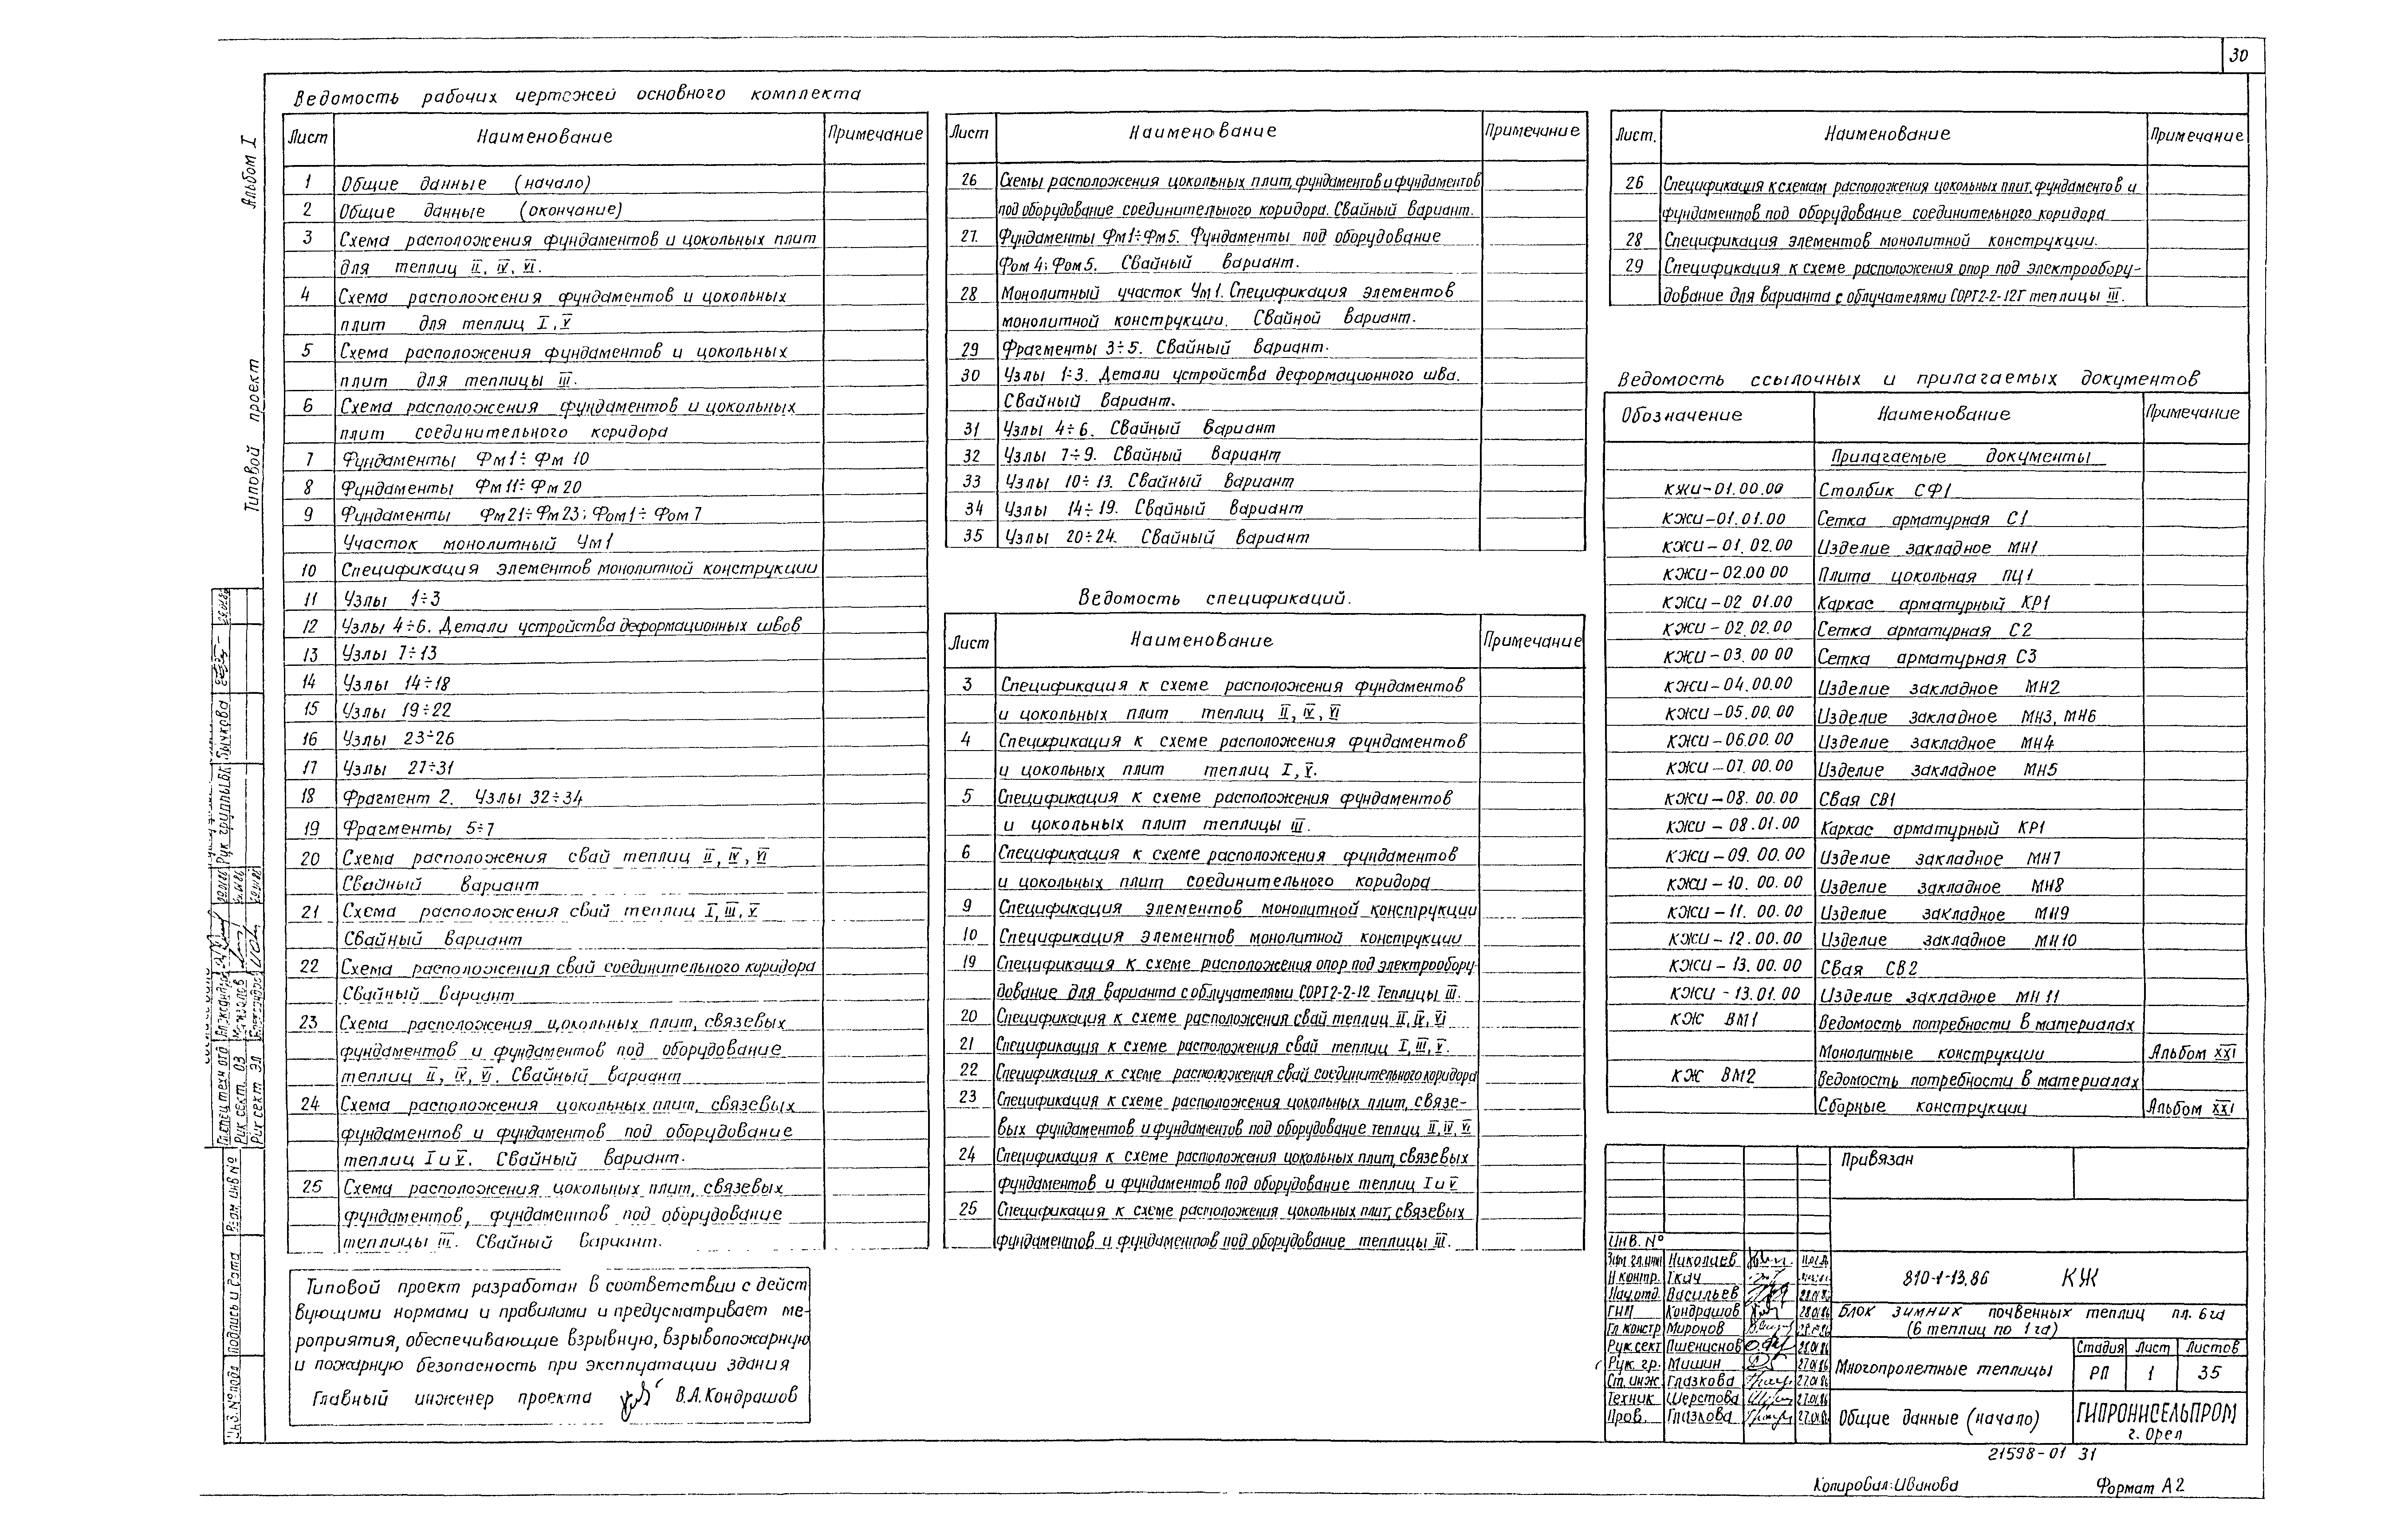 30
Альбом I
Типовой проект
Ведомость рабочих чертежей основного комплекта
Лист Наименование Примечание
1 Общие данные (начало)
2 Общие данные (окончание)
3 Схема расположения фундаментов и цокольных плит
для теплиц II, IV, VI.
4 Схема расположения фундаментов и цокольных
плит для теплиц I, V
5 Схема расположения фундаментов и цокольных
плит для теплицы III.
6 Схема расположения фундаментов и цокольных
плит соединительного коридора
7 Фундаменты Фм1÷Фм 10
8 Фундаменты Фм11÷Фм20
9 Фундаменты Фм21÷Фм23; Фом1÷Фом7
Участок монолитный Ум1
10 Спецификация элементов монолитной конструкции
11 Узлы 1÷3
12 Узлы 4÷6. Детали устройства деформационных швов
13 Узлы 7÷13
14 Узлы 14÷18
15 Узлы 19÷22
16 Узлы 23÷26
17 Узлы 27÷31
18 Фрагмент 2. Узлы 32÷34
19 Фрагменты 5÷7
20 Схема расположения свай теплиц II, IV, VI
Свайный вариант
21 Схема расположения свай теплиц I, III, V
Свайный вариант
22 Схема расположения свай соединительного коридора
Свайный вариант
23 Схема расположения цокольных плит, связевых
фундаментов и фундаментов под оборудование
теплиц II, IV, VI. Свайный вариант
24 Схема расположения цокольных плит, связевых
фундаментов и фундаментов под оборудование
теплиц I и V. Свайный вариант.
25 Схема расположения цокольных плит, связевых
фундаментов, фундаментов под оборудование
теплицы III. Свайный вариант.
Типовой проект разработан в соответствии с дейст
вующими нормами и правилами и предусматривает ме-
роприятия, обеспечивающие взрывную, взрывопожарную
и пожарную безопасность при эксплуатации здания
Главный инженер проекта В.А.Кондрашов
Лист Наименование Примечание
26 Схемы расположения цокольных плит, фундаментов и фундаментов
под оборудование соединительного коридора. Свайный вариант.
27. Фундаменты Фм1÷Фм5. Фундаменты под оборудование
Фом4; Фом5. Свайный вариант.
28 Монолитный участок Ум1. Спецификация элементов
монолитной конструкции. Свайной вариант.
29 Фрагменты 3÷5. Свайный вариант.
30 Узлы 1÷3. Детали устройства деформационного шва.
Свайный вариант.
31 Узлы 4÷6. Свайный вариант
32 Узлы 7÷9. Свайный вариант
33 Узлы 10÷13. Свайный вариант
34 Узлы 14÷19. Свайный вариант
35 Узлы 20÷24. Свайный вариант
Ведомость спецификаций.
Лист Наименование Примечание
3 Спецификация к схеме расположения фундаментов
и цокольных плит теплиц II, IV, VI
4 Спецификация к схеме расположения фундаментов
и цокольных плит теплиц I, V.
5 Спецификация к схеме расположения фундаментов
и цокольных плит теплицы III.
6 Спецификация к схеме расположения фундаментов
и цокольных плит соединительного коридора
9 Спецификация элементов монолитной конструкции
10 Спецификация элементов монолитной конструкции
19 Спецификация к схеме расположения опор под электрообору-
дование для варианта с облучателями СОРТ2-2-12 Теплицы III.
20 Спецификация к схеме расположения свай теплиц II, IV, VI
21 Спецификация к схеме расположения свай теплиц I, III, V.
22 Спецификация к схеме расположения свай соединительного коридора
23 Спецификация к схеме расположения цокольных плит, связе-
вых фундаментов и фундаментов под оборудование теплиц II, IV, VI
24 Спецификация к схеме расположения цокольных плит, связевых
фундаментов и фундаментов под оборудование теплиц I и V
25 Спецификация к схеме расположения цокольных плит, связевых
фундаментов и фундаментов под оборудование теплицы III.
Лист. Наименование Примечание
26 Спецификация к схемам расположения цокольных плит, фундаментов и
фундаментов под оборудование соединительного коридора
28 Спецификация элементов монолитной конструкции.
29 Спецификация к схеме расположения опор под электрообору-
дование для варианта с облучателями СОРТ2-2-12Г теплицы III.
Ведомость ссылочных и прилагаемых документов
Обозначение Наименование Примечание
Прилагаемые документы
КЖИ-01.00.00 Столбик СФ1
КЖИ-01.01.00 Сетка арматурная С1
КЖИ-01.02.00 Изделие закладное МН1
КЖИ-02.00 00 Плита цокольная ПЦ1
КЖИ-02 01.00 Каркас арматурный КР1
КЖИ-02.02.00 Сетка арматурная С2
КЖИ-03.00 00 Сетка арматурная С3
КЖИ-04.00.00 Изделие закладное МН2
КЖИ-05.00.00 Изделие закладное МН3, МН6
КЖИ-06.00.00 Изделие закладное МН4
КЖИ-07.00.00 Изделие закладное МН5
КЖИ-08.00.00 Свая СВ1
КЖИ-08.01.00 Каркас арматурный КР1
КЖИ-09.00.00 Изделие закладное МН7
КЖИ-10.00.00 Изделие закладное МН8
КЖИ-11.00.00 Изделие закладное МН9
КЖИ-12.00.00 Изделие закладное МН10
КЖИ-13.00.00 Свая СВ2
КЖИ-13.01.00 Изделие закладное МН 11
КЖ ВМ1 Ведомость потребности в материалах
Монолитные конструкции Альбом XXI
КЖ ВМ2 Ведомость потребности в материалах
Сборные конструкции Альбом XXI
Привязан
Инв. №
Николаев
Н контр. Ткач
Нач.отд. Васильев
ГИП Кондрашов 28.01.86
Гл констр Миронов
Рук.сект Пшениснов 28.01.86
Рук. гр. Мишин 27.01.86
Ст. инж Глазкова 27.01.86
Техник Шерстова 27.01.86
Пров. Глазкова 27.01.86
810-1-13.86 КЖ
Блок зимних почвенных теплиц пл. 6 га
(6 теплиц по 1 га)
Многопролетные теплицы
Стадия Лист Листов
РП 1 35
Общие данные (начало)
ГИПРОНИСЕЛЬПРОМ
г. Орел
21598-01 31
Копировал: Иванова Формат А2
Рук группы ВК Бычкова
Рук сект. ОЗ
Рук сект ЭЛ
Взам. инв №
Подпись и дата
Инв. № подл